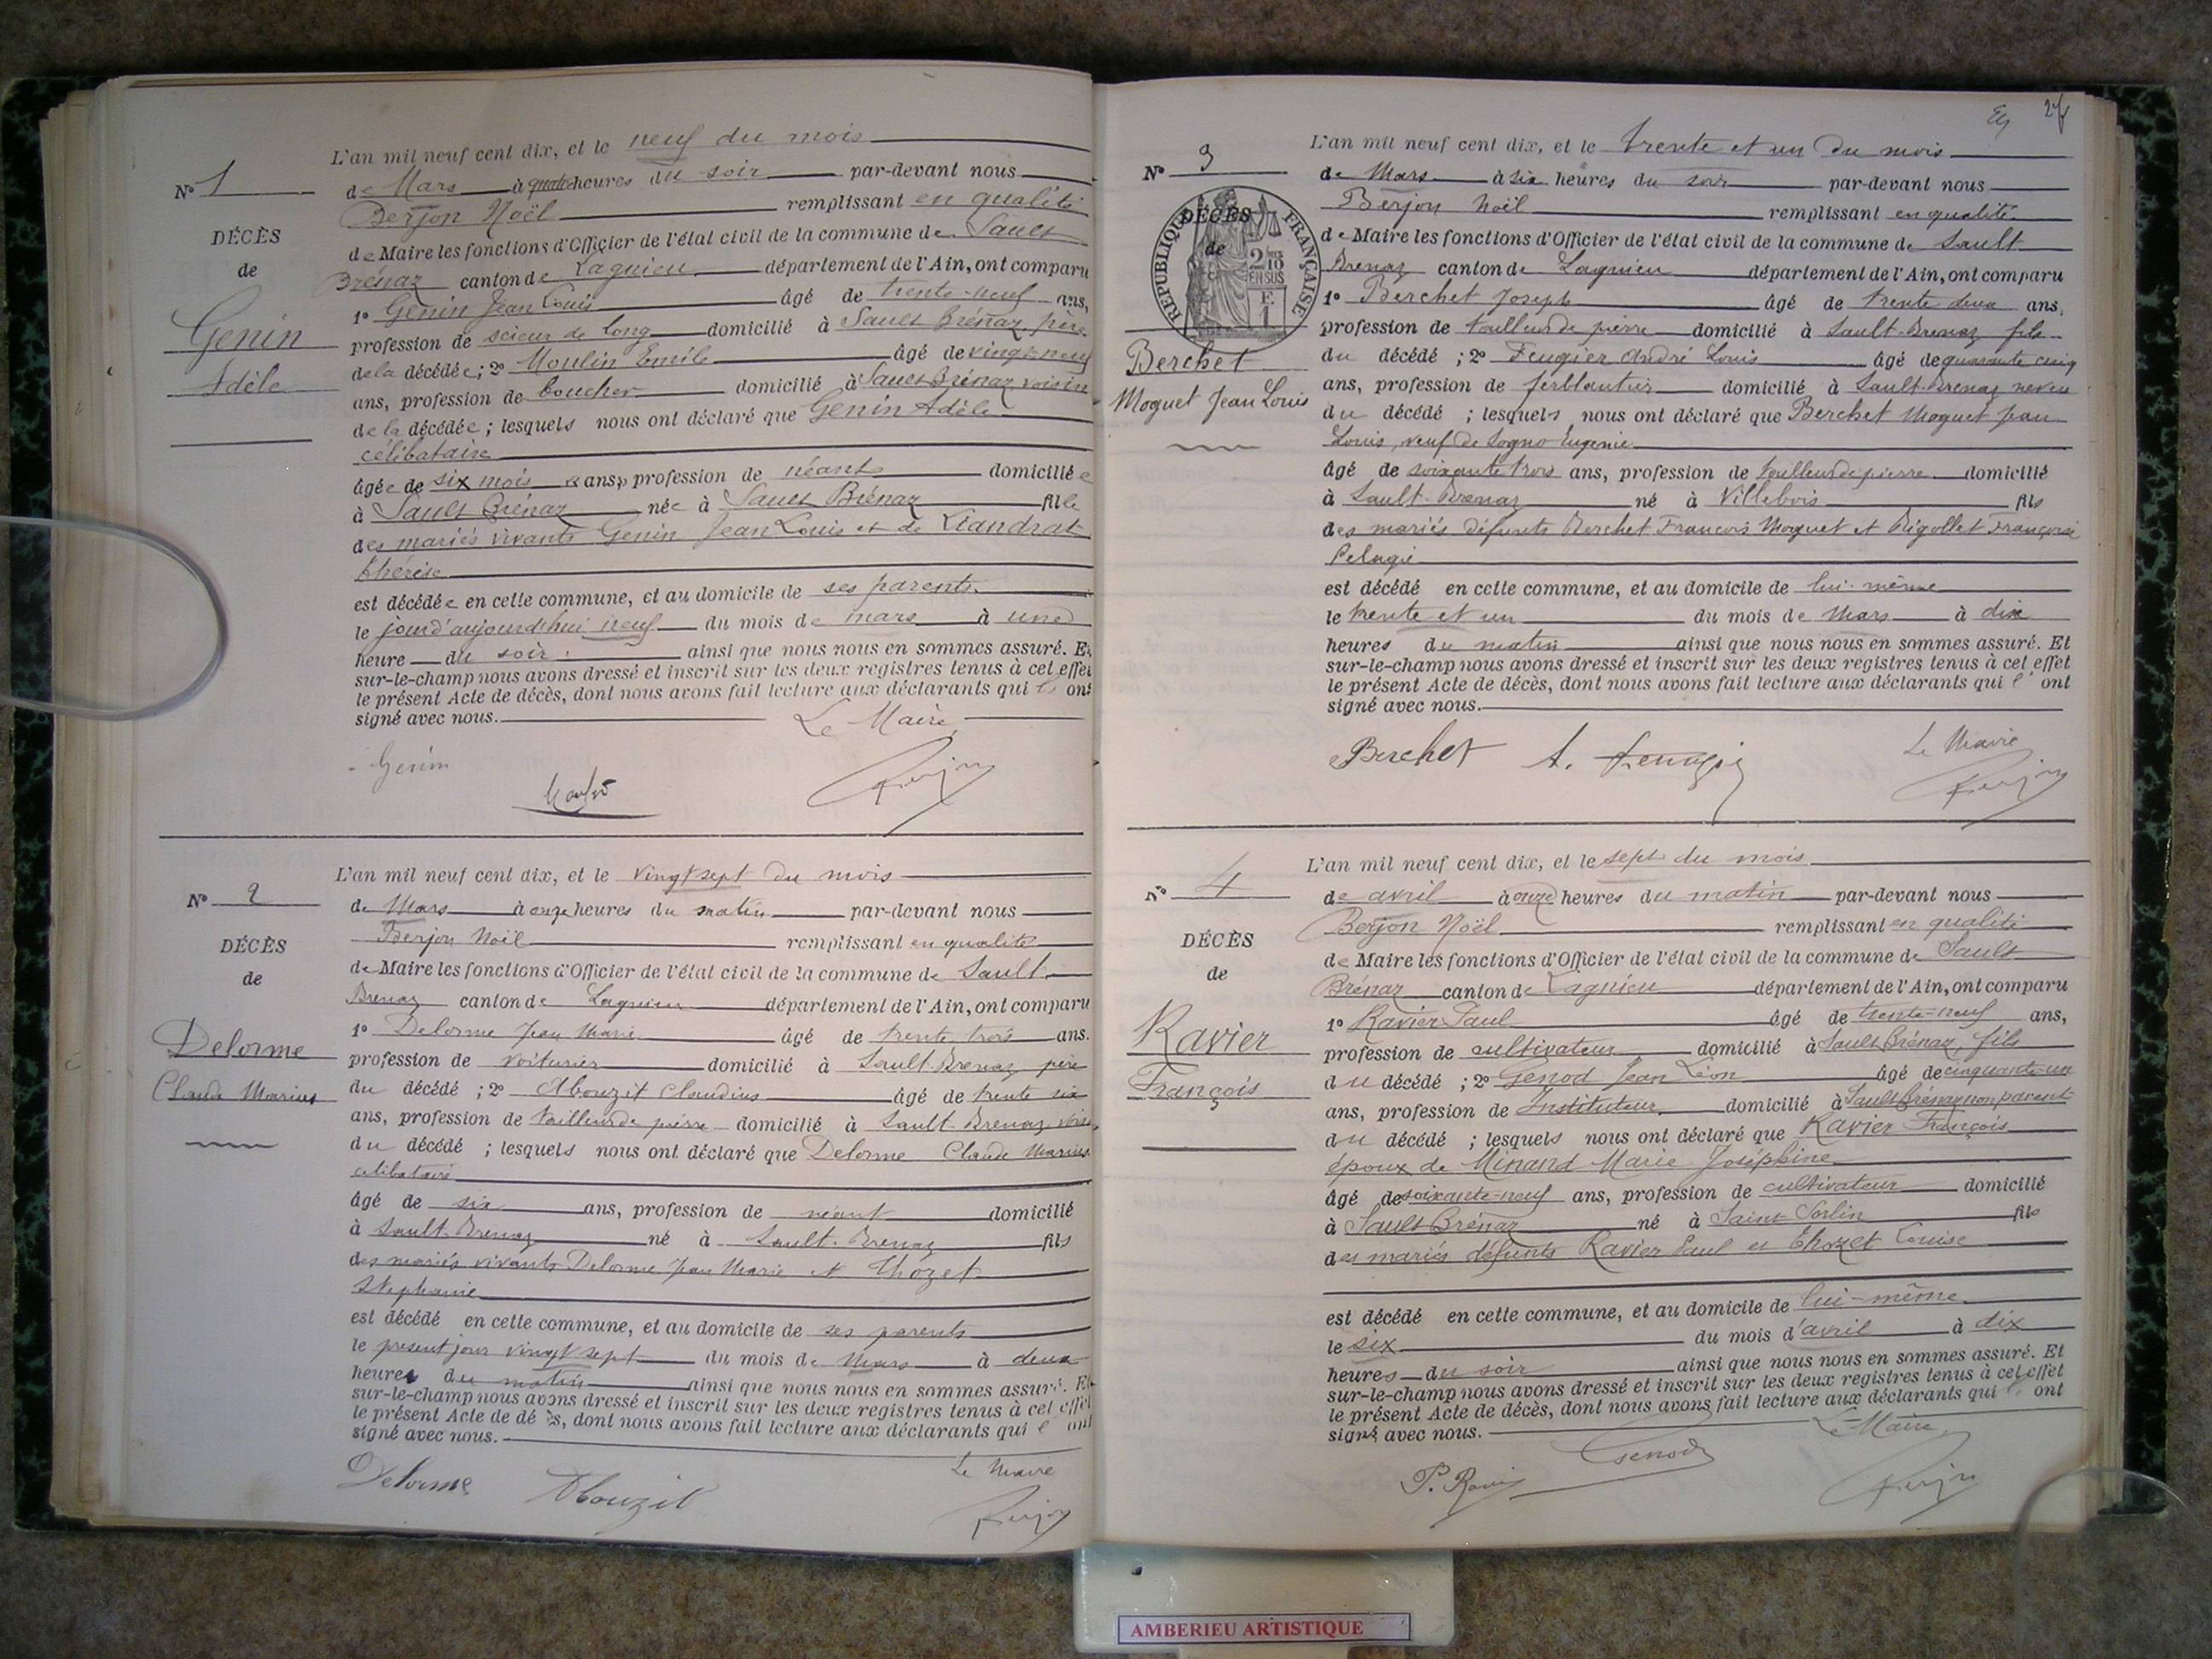 L'an mil neuf cent dix, et le neuf du mois
N° 1
de Mars à quatre heures du soir par-devant nous
Berjon Noël remplissant en qualité
DÉCÈS
de Maire les fonctions d'Officier de l'état civil de la commune de Sault
de
Brénaz canton de Lagnieu département de l'Ain, ont comparu
1° Genin Jean Louis âgé de trente-neuf ans,
Genin
profession de scieur de long domicilié à Sault Brénaz, père
de la décédée; 2° Moulin Emile âgé de vingt-neuf
Adèle
ans, profession de boucher domicilié à Sault Brénaz voisin
de la décédée; lesquels nous ont déclaré que Genin Adèle
célibataire
âgée de six mois ans, profession de néant domiciliée
à Sault Brénaz née à Sault Brénaz fille
des mariés vivants Genin Jean Louis et de Liandrat
thérèse
est décédée en cette commune, et au domicile de ses parents.
le jourd'aujourd'hui neuf du mois de mars à une
heure du soir ainsi que nous nous en sommes assuré. Et
sur-le-champ nous avons dressé et inscrit sur les deux registres tenus à cet effet
le présent Acte de décès, dont nous avons fait lecture aux déclarants qui l' ont
signé avec nous. Le Maire
Genin
L'an mil neuf cent dix, et le vingt sept du mois
N° 2
de Mars à onze heures du matin par-devant nous
Berjon Noël remplissant en qualité
DÉCÈS
de Maire les fonctions d'Officier de l'état civil de la commune de Sault
de
Brenaz canton de Lagnieu département de l'Ain, ont comparu
1° Delorme Jean Marie âgé de trente trois ans.
Delorme
profession de voiturier domicilié à Sault-Brenaz père
Claude Marius
du décédé ; 2° Abouzit Claudius âgé de trente six
ans, profession de tailleur de pierre domicilié à Sault Brenaz
du décédé ; lesquels nous ont déclaré que Delorme Claude Marius
celibataire
âgé de six ans, profession de néant domicilié
à Sault-Brenaz né à Sault-Brenaz fils
des mariés vivants Delorme Jean Marie et Thozet
Stephanie
est décédé en cette commune, et au domicile de ses parents
le present jour vingt sept du mois de Mars à deux
heures du matin ainsi que nous nous en sommes assuré. Et
sur-le-champ nous avons dressé et inscrit sur les deux registres tenus à cet effet
le présent Acte de décès, dont nous avons fait lecture aux déclarants qui l' ont
signé avec nous.
Delorme Abouzit Le Maire
L'an mil neuf cent dix, et le trente et un du mois
N° 3
de Mars à six heures du soir par-devant nous
Berjon Noël remplissant en qualité
DÉCÈS
de
RÉPUBLIQUE FRANÇAISE
2/10 EN SUS
F. 1
de Maire les fonctions d'Officier de l'état civil de la commune de Sault
Brenaz canton de Lagnieu département de l'Ain, ont comparu
1° Berchet Joseph âgé de trente deux ans,
profession de tailleur de pierre domicilié à Sault-Brenaz fils
Berchet
du décédé ; 2° Feugier André Louis âgé de quarante cinq
Moguet Jean Louis
ans, profession de ferblantier domicilié à Sault-Brenaz neveu
du décédé ; lesquels nous ont déclaré que Berchet Moguet Jean
Louis, veuf de Sogno Eugenie
âgé de soixante trois ans, profession de tailleur de pierre domicilié
à Sault-Brenaz né à Villebois fils
des mariés défunts Berchet Francois Moguet et Rigollet Françoise
Pelagie
est décédé en cette commune, et au domicile de lui-même
le trente et un du mois de Mars à dix
heures du matin ainsi que nous nous en sommes assuré. Et
sur-le-champ nous avons dressé et inscrit sur les deux registres tenus à cet effet
le présent Acte de décès, dont nous avons fait lecture aux déclarants qui l' ont
signé avec nous.
Berchet A. Feugier Le Maire
L'an mil neuf cent dix, et le sept du mois
N° 4
de avril à onze heures du matin par-devant nous
Berjon Noël remplissant en qualité
DÉCÈS
de Maire les fonctions d'Officier de l'état civil de la commune de Sault
de
Brénaz canton de Lagnieu département de l'Ain, ont comparu
1° Ravier Paul âgé de trente-neuf ans,
Ravier
profession de cultivateur domicilié à Sault Brénaz, fils
François
du décédé ; 2° Genod Jean Léon âgé de cinquante-un
ans, profession de Instituteur domicilié à Sault Brénaz non parent
du décédé ; lesquels nous ont déclaré que Ravier François
époux de Minand Marie Joséphine
âgé de soixante-neuf ans, profession de cultivateur domicilié
à Sault Brénaz né à Saint Sorlin fils
des mariés défunts Ravier Paul et Thozet Louise
est décédé en cette commune, et au domicile de lui-même
le six du mois d'avril à dix
heures du soir ainsi que nous nous en sommes assuré. Et
sur-le-champ nous avons dressé et inscrit sur les deux registres tenus à cet effet
le présent Acte de décès, dont nous avons fait lecture aux déclarants qui l' ont
signé avec nous. Le Maire
P. Ravier Genod
AMBERIEU ARTISTIQUE